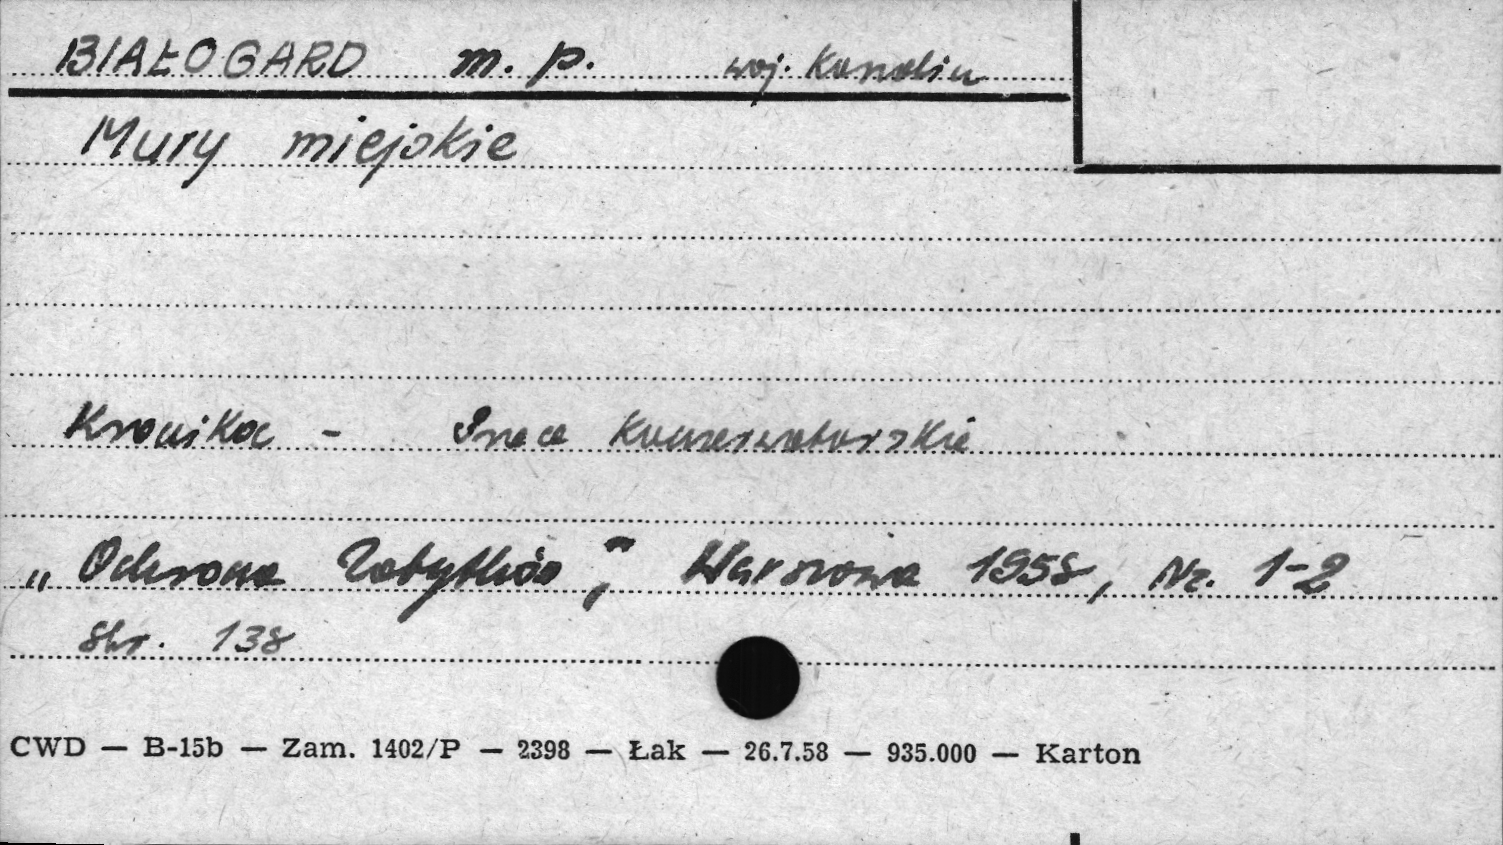 BIAŁOGARD m. p. woj. Koszalin
Mury miejskie
Kronika - Prace konserwatorskie
„Ochrona Zabytków", Warszawa 1958, Nr. 1-2
str. 138
CWD — B-15b — Zam. 1402/P — 2398 — Łak — 26.7.58 — 935.000 — Karton